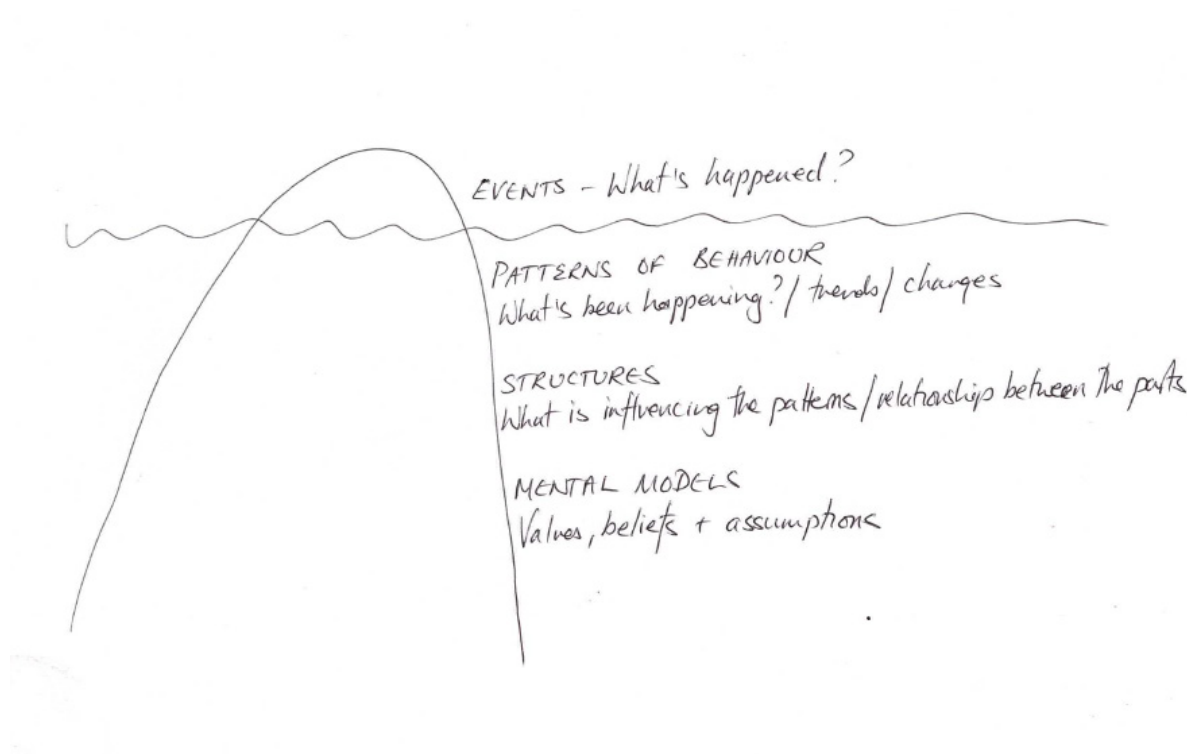 EVENTS - What's happened?
PATTERNS OF BEHAVIOUR
What's been happening?/ trends/ changes
STRUCTURES
What is influencing the patterns/relationship between the parts
MENTAL MODELS
Values, beliefs + assumptions